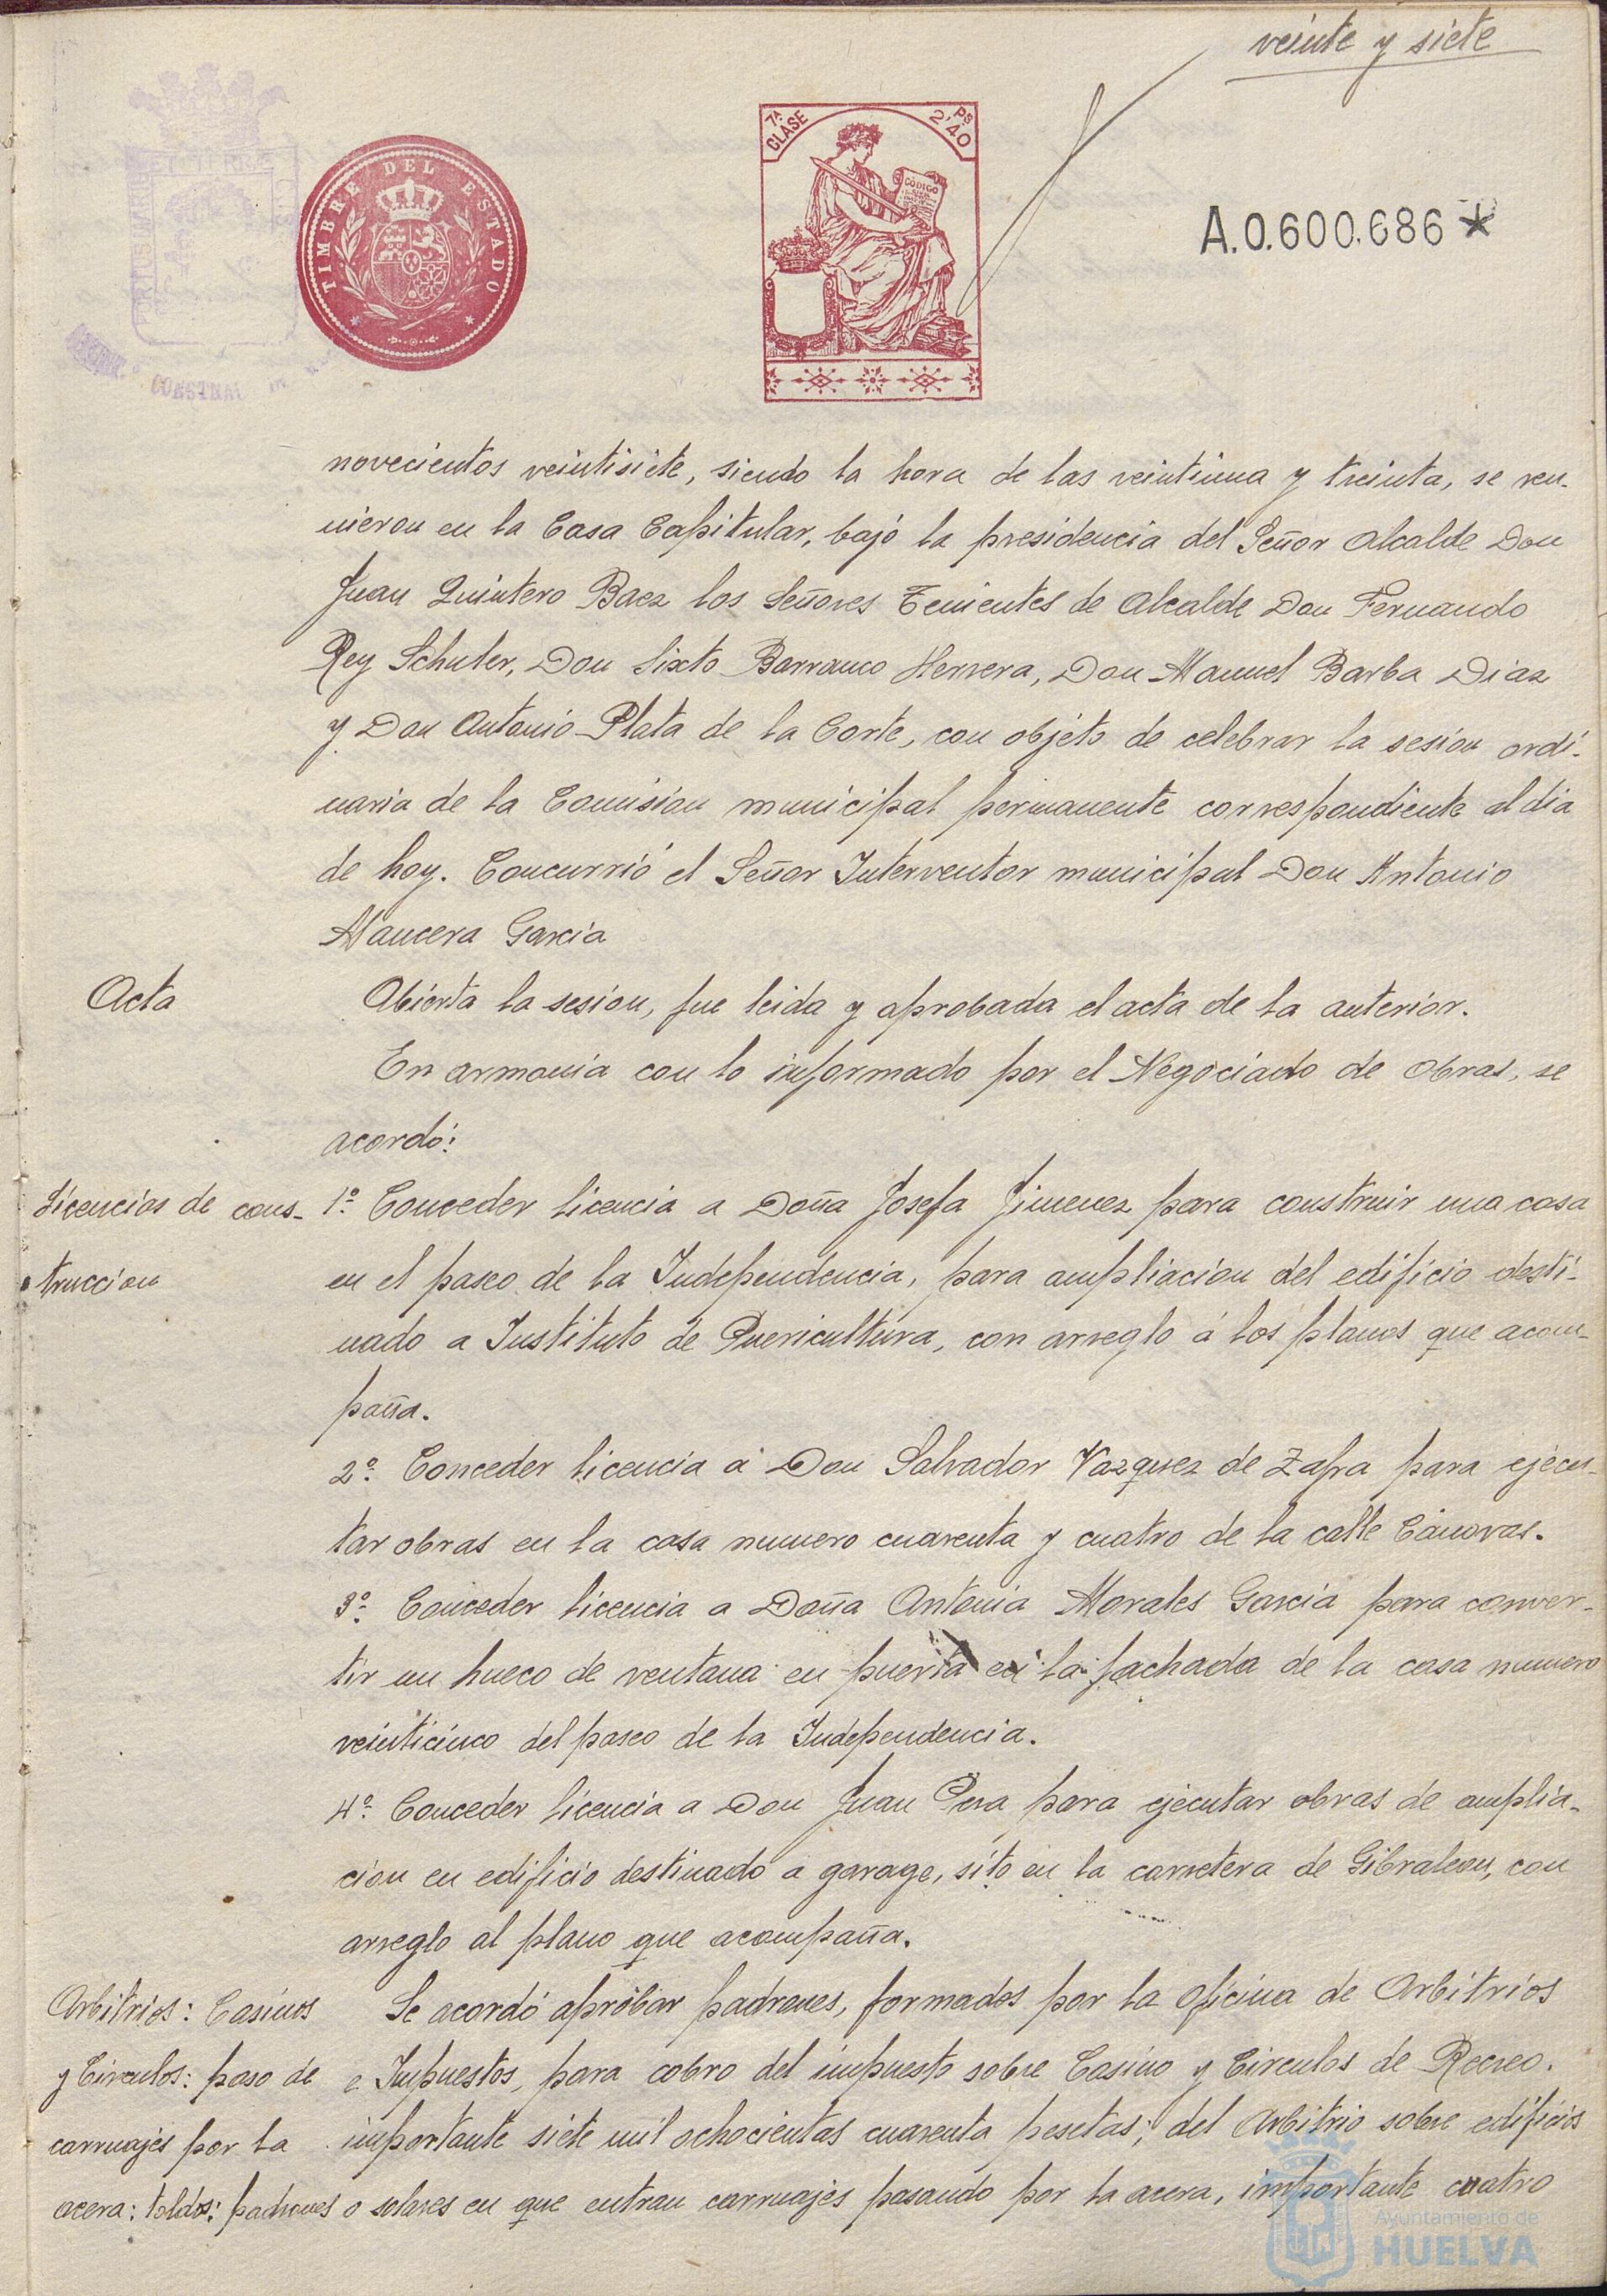 veinte y siete
TIMBRE DEL ESTADO
7ª CLASE
Ps 2'40
CÓDIGO
A.0.600.686 *
novecientos veintisiete, siendo la hora de las veintiuna y treinta, se reu-
nieron en la Casa Capitular, bajo la presidencia del Señor Alcalde Don
Juan Quintero Baez los Señores Tenientes de Alcalde Don Fernando
Rey Schuler, Don Sixto Barranco Herrera, Don Manuel Barba Diaz
y Don Antonio Plata de la Corte, con objeto de celebrar la sesion ordi-
naria de la Comision municipal permanente correspondiente al dia
de hoy. Concurrió el Señor Interventor municipal Don Antonio
Mancera Garcia
Acta
Abierta la sesion, fue leida y aprobada el acta de la anterior.
En armonia con lo informado por el Negociado de Obras, se
acordó:
Licencias de cons-
truccion
1º Conceder licencia a Doña Josefa Jimenez para construir una casa
en el paseo de la Independencia, para ampliacion del edificio desti-
nado a Instituto de Puericultura, con arreglo á los planos que acom-
paña.
2º Conceder licencia á Don Salvador Vazquez de Zafra para ejecu-
tar obras en la casa numero cuarenta y cuatro de la calle Cánovas.
3º Conceder licencia a Doña Antonia Morales Garcia para conver-
tir un hueco de ventana en puerta en la fachada de la casa numero
veinticinco del paseo de la Independencia.
4º Conceder licencia a Don Juan para ejecutar obras de amplia-
cion en edificio destinado a garage, sito en la carretera de Gibraleon, con
arreglo al plano que acompaña.
Arbitrios: Casinos
y Circulos: paso de
carruajes por la
acera: toldos: padrones
Se acordó aprobar padrones, formados por la Oficina de Arbitrios
e Impuestos, para cobro del impuesto sobre Casino y Circulos de Recreo.
importante siete mil ochocientas cuarenta pesetas; del Arbitrio sobre edificios
o solares en que entran carruajes pasando por la acera, importante cuatro
Ayuntamiento de
HUELVA